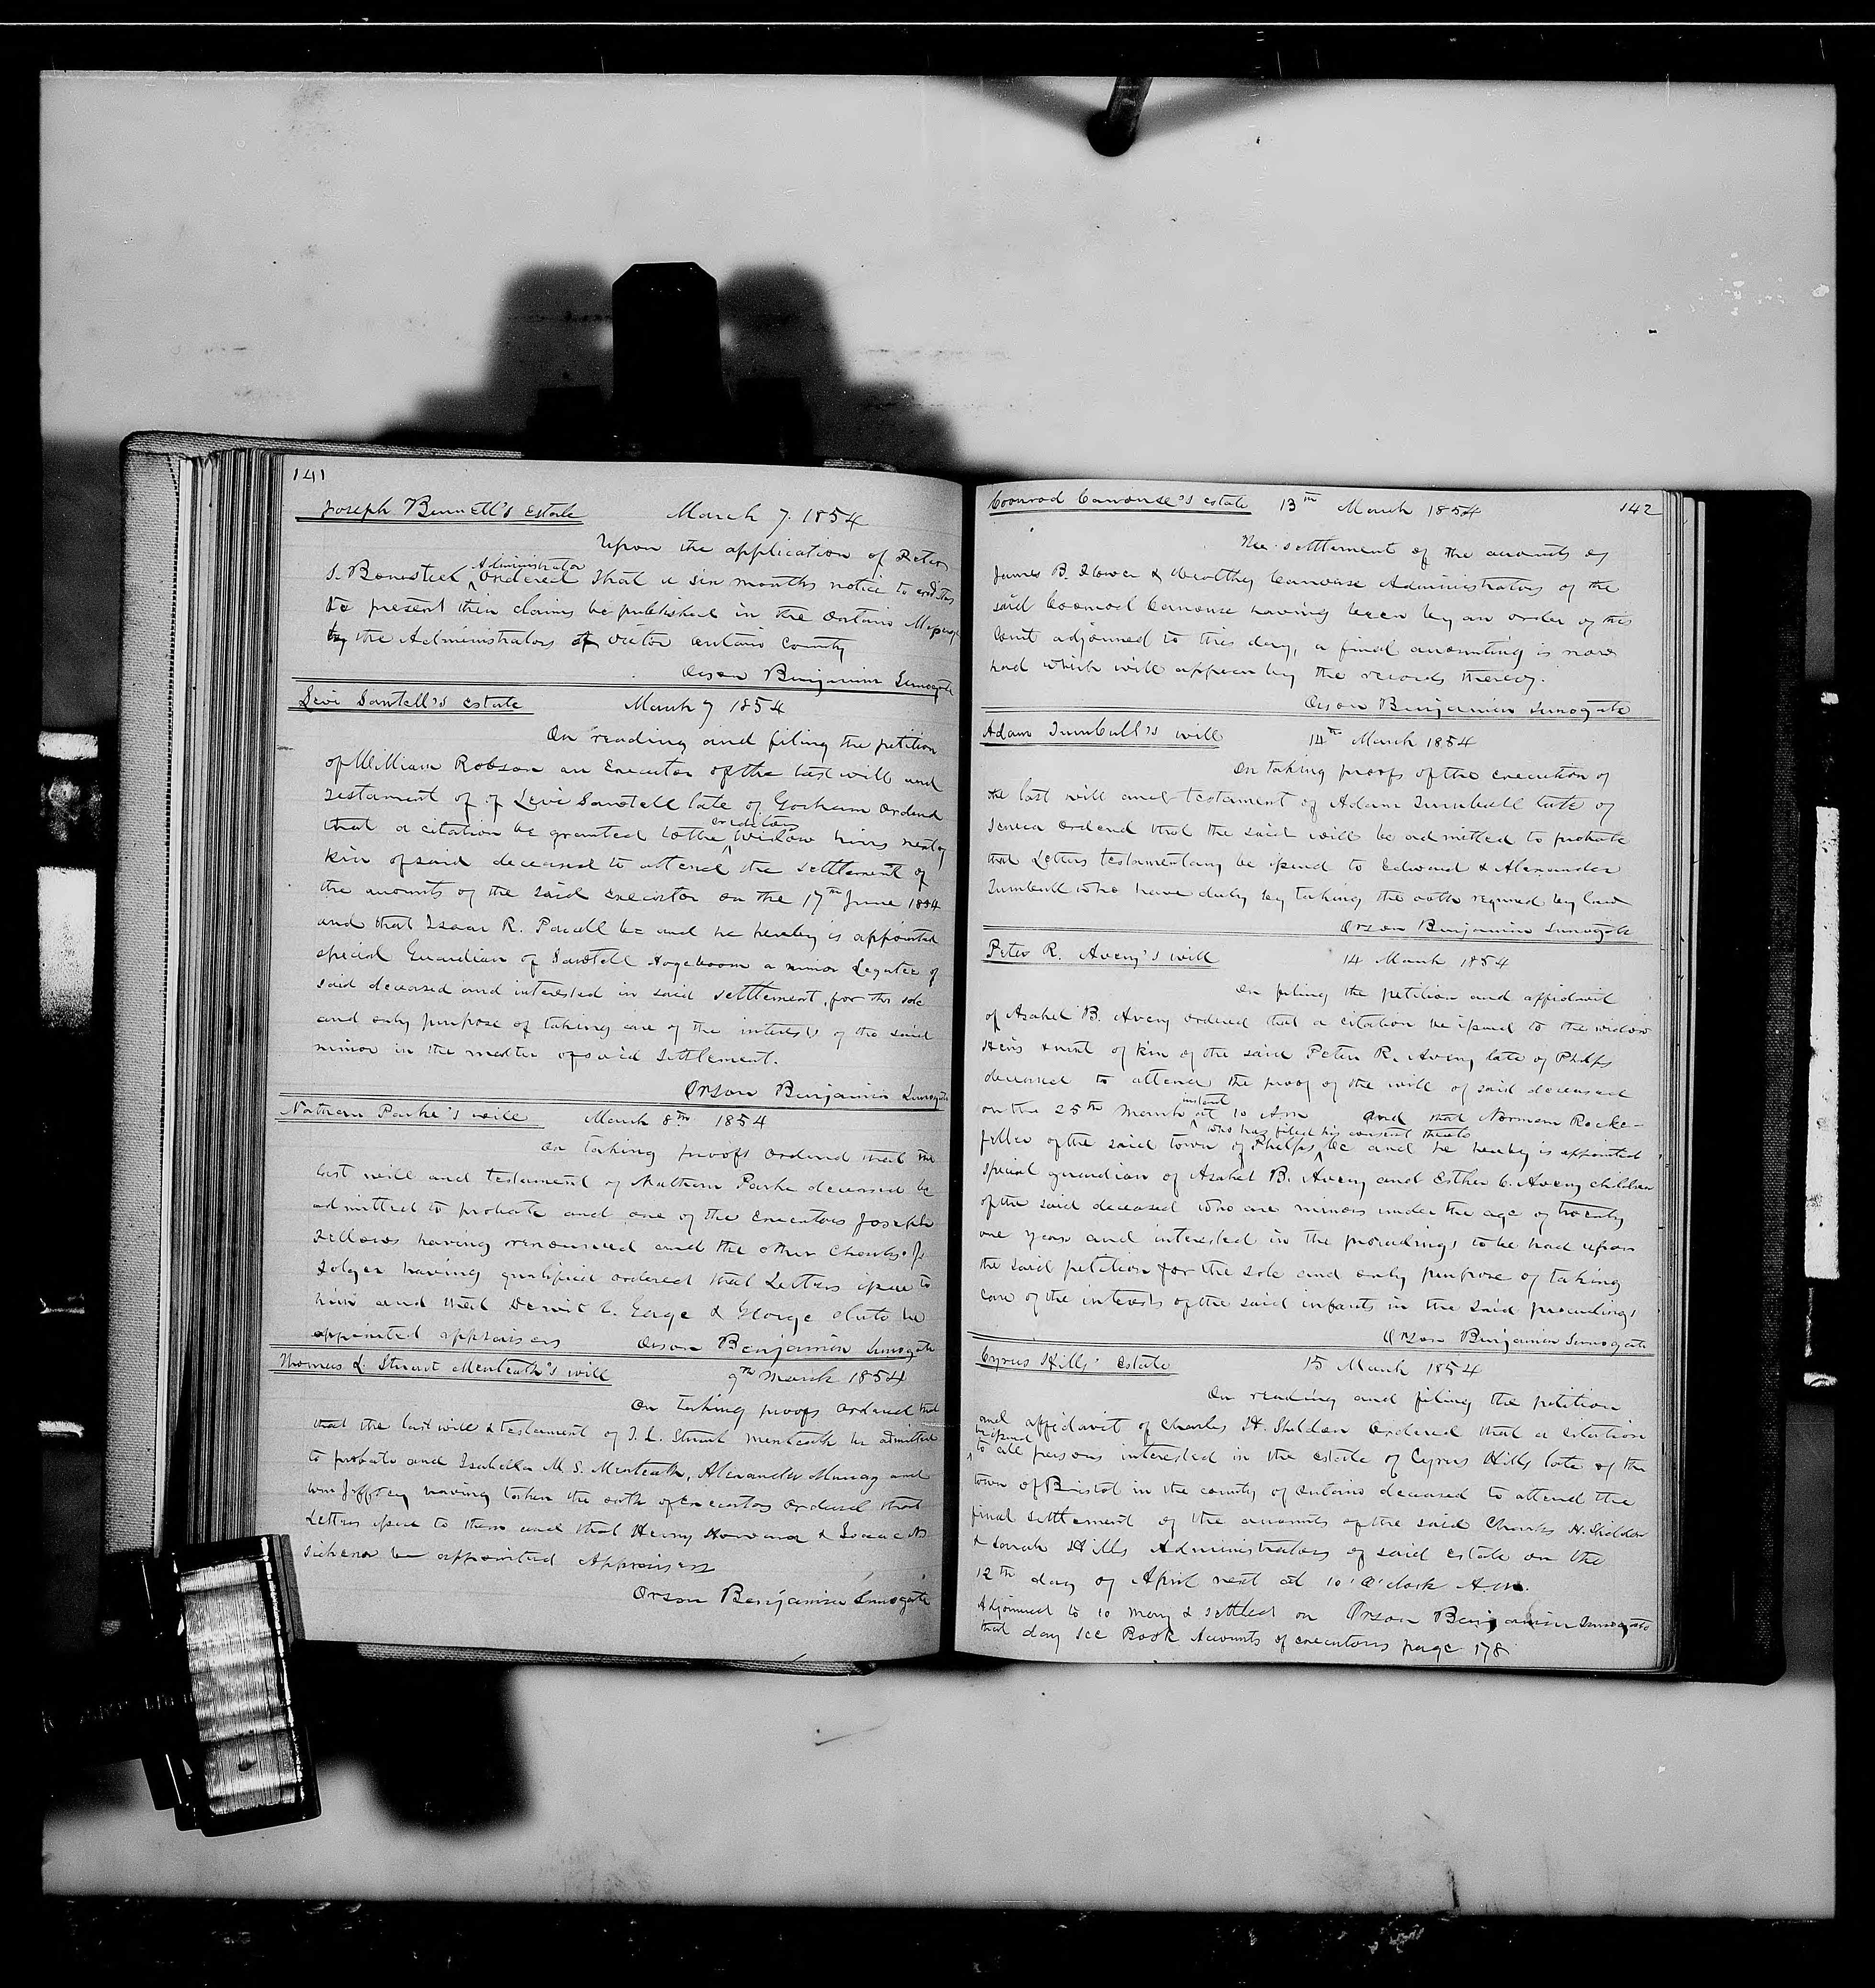 141
Joseph Bennett's estate March 7. 1854
Upon the application of Peter
S. Bonesteel Administrator ordered that a six months notice to creditors
to present their claims be published in the Ontario
by the Administrators at Victor Ontario County
Orson Benjamin Surrogate
Levi Sawtell's estate March 7 1854
On reading and filing the petition
of William Robson an Executor of the last will and
testament of of Levi Sawtell late of Gorham ordered
that a citation be granted to the creditors widow heirs next of
kin of said deceased to attend the settlement of
the accounts of the said executor on the 17th June 1854
and that Isaac R. Parcell be and he hereby is appointed
special Guardian of Sawtell Hogeboom a minor Legatee of
said deceased and interested in said settlement, for the sole
and only purpose of taking care of the interests of the said
minor in the matter of said settlement.
Orson Benjamin Surrogate
Nathan Parke's will March 8th 1854
On taking proofs ordered that the
last will and testament of Nathan Parke deceased be
admitted to probate and one of the executors Joseph
Fellows having renounced and the other Charles J.
Folger having qualified ordered that Letters issue to
him and that Dewit C. Gage & George be
appointed appraisers Orson Benjamin Surrogate
Thomas L. Stuart Menteath's will 9th March 1854
On taking proofs ordered that
that the last will & testament of T. L. Stuart Menteath be admitted
to probate and Isabella M. S. Menteath, Alexander Murray and
Wm Jeffrey having taken the oath of executors ordered that
Letters issue to them and that Henry Howard & Isaac
be appointed Appraisers
Orson Benjamin Surrogate
Coonrod Canouse's estate 13th March 1854 142
The settlement of the accounts of
James B. Flower & Wealthy Canouse Administrators of the
said Coonrod Canouse having been by an order of this
Court adjourned to this day, a final accounting is now
had which will appear by the records thereof.
Orson Benjamin Surrogate
Adam Turnbull's will 14th March 1854
On taking proofs of the execution of
the last will and testament of Adam Turnbull late of
Seneca ordered that the said will be admitted to probate
that Letters testamentary be issued to Edward & Alexander
Turnbull who have duly by taking the oath required by law
Orson Benjamin Surrogate
Peter R. Avery's will 14 March 1854
On filing the petition and affidavit
of Asahel B. Avery ordered that a citation be issued to the widow
Heirs & next of kin of the said Peter R. Avery late of Phelps
deceased to attend the proof of the will of said deceased
on the 25th March instant at 10 A.m and that Norman Rocke-
feller of the said town of Phelps who has filed his consent thereto be and he hereby is appointed
special guardian of Asahel B. Avery and Esther C. Avery children
of the said deceased who are minors under the age of twenty
one years and interested in the proceedings to be had upon
the said petition for the sole and only purpose of taking
care of the interests of the said infants in the said proceedings
Orson Benjamin Surrogate
Cyrus Hills' estate 15 March 1854
On reading and filing the petition
and affidavit of Charles H. Sheldon ordered that a citation
be issued to all persons interested in the estate of Cyrus Hills late of the
town of Bristol in the county of Ontario deceased to attend the
final settlement of the accounts of the said Charles H. Sheldon
& Sarah Hills Administrators of said estate on the
12th day of April next at 10 O'clock A.M.
Adjourned to 10 May & settled on Orson Benjamin Surrogate
that day see Book Accounts of executors page 178